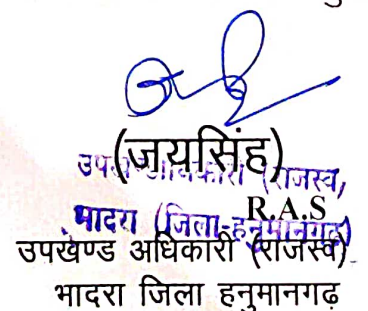 (जयसिंह)
उपखण्ड अधिकारी (राजस्व)
R.A.S
भादरा (जिला-हनुमानगढ़)
उपखेण्ड अधिकारी (राजस्व)
भादरा जिला हनुमानगढ़